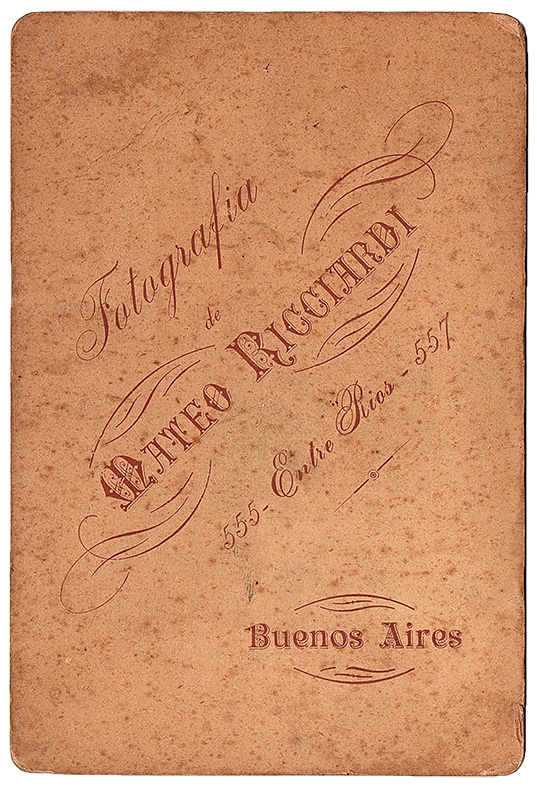 Fotografia
de
MATEO RICCIARDI
555 - Entre Rios - 557
Buenos Aires